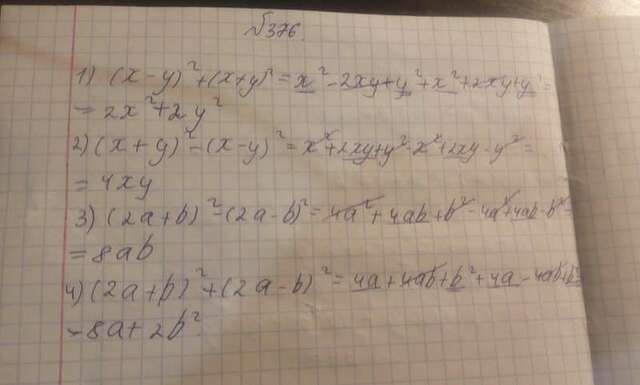 №376.
1) (x-y)²+(x+y)²=x²-2xy+y²+x²+2xy+y²=
=2x²+2y²
2) (x+y)²-(x-y)²=x²+2xy+y²-x²+2xy-y²=
=4xy
3) (2a+b)²-(2a-b)²=4a²+4ab+b²-4a²+4ab-b²=
=8ab
4) (2a+b)²+(2a-b)²=4a+4ab+b²+4a-4ab+b²
=8a+2b²